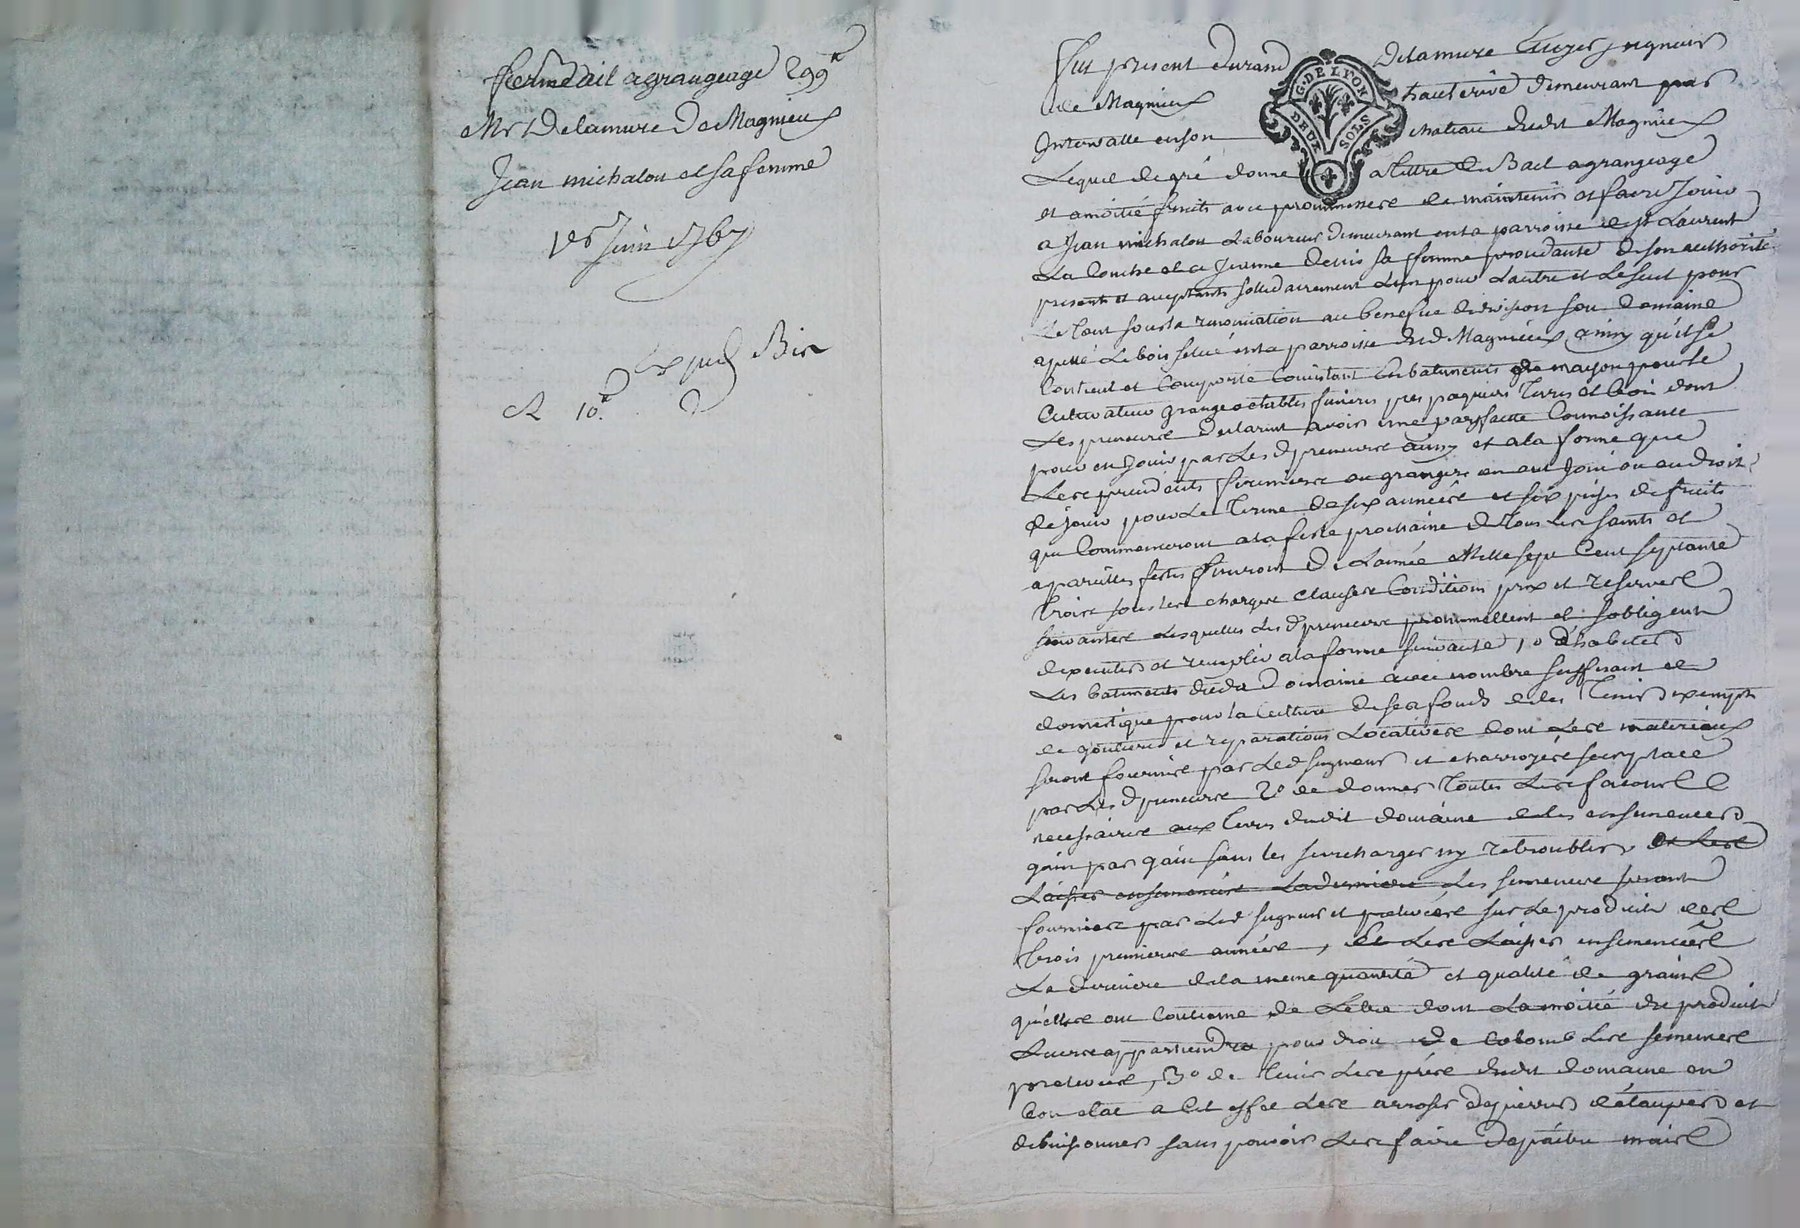 ferme dail agrangeage 299ᵗᵗ
Mr Delamure De Magnieu
Jean michalon et sa femme
1er Juin 1767
exped Bis
et 10.
G. DE LYON
DEUX SOLS
fut present Durand Delamure Ecuyer seigneur
de Magnieux hauterive demeurant par
Intervalle en son chateau dudit Magnieux
Lequel de gré donne a tittre du Bail agrangeage
et amoitié fruits avec prommesse de maintenir et faire Jouir
a Jean michalon Laboureur demeurant en la parroisse de st Laurent
La Conche et a Jeanne Denis sa femme procedante de son authorité
presents et acceptants sollidairement L'un pour L'autre et Le seul pour
Le Tout sous la renonciation au benefice de division son domaine
apellé Le bois situé en la parroisse dud Magnieux ainsy qu'il se
Contient et Comporte Consistant En batiments de maison pour le
Cultivateur grange etables fenieres prés paquiers Terres et bois dont
Les preneurs declarent avoir une parfaitte Connoissance
pour en Jouir par Les d preneurs ainsy et a la forme que
Les precedents fermiers ou grangers en ont Joui ou eu droit
de jouir pour Le Terme de six années et six prises de fruits
qui Commenceront a la feste prochaine de Tous Les saints et
a pareilles festes finiront De L'année Mille sept Cent septante
trois sous les charges Clauses Conditions prix et reserves
suivantes Lesquelles Les d preneurs prommettent et s'obligent
d'executer et remplir a la forme suivante 1º d'habiter
Les batiments dudit Domaine avec nombre suffisant de
domestique pour la Culture de ses fonds de les Tenir exempts
de goutieres et reparations Locatives dont Les materiaux
seront fournis par Led seigneur et charroyés sur place
par Les d preneurs 2º de donner Toutes Les façons
necessaires aux terres dudit domaine de les ensemencer
gain par gain sans les surcharger ny retroubler, et Les
Laisser ensemencées La derniere Les semences seront
fournies par Led seigneur et prelevées sur Le produit des
trois premieres années, et Les Laisser ensemencées
La derniere de la meme quantité et qualité de grains
qu'elles ont Coutume de L'etre dont La moitié du produit
Leur appartiendra pour droit de Colomb Les semences
prelevées, 3º de Tenir Les prés dudit domaine en
bon etat a Cet effet Les arroser depierrer detauper et
debuissonner sans pouvoir Les faire depaitre mais